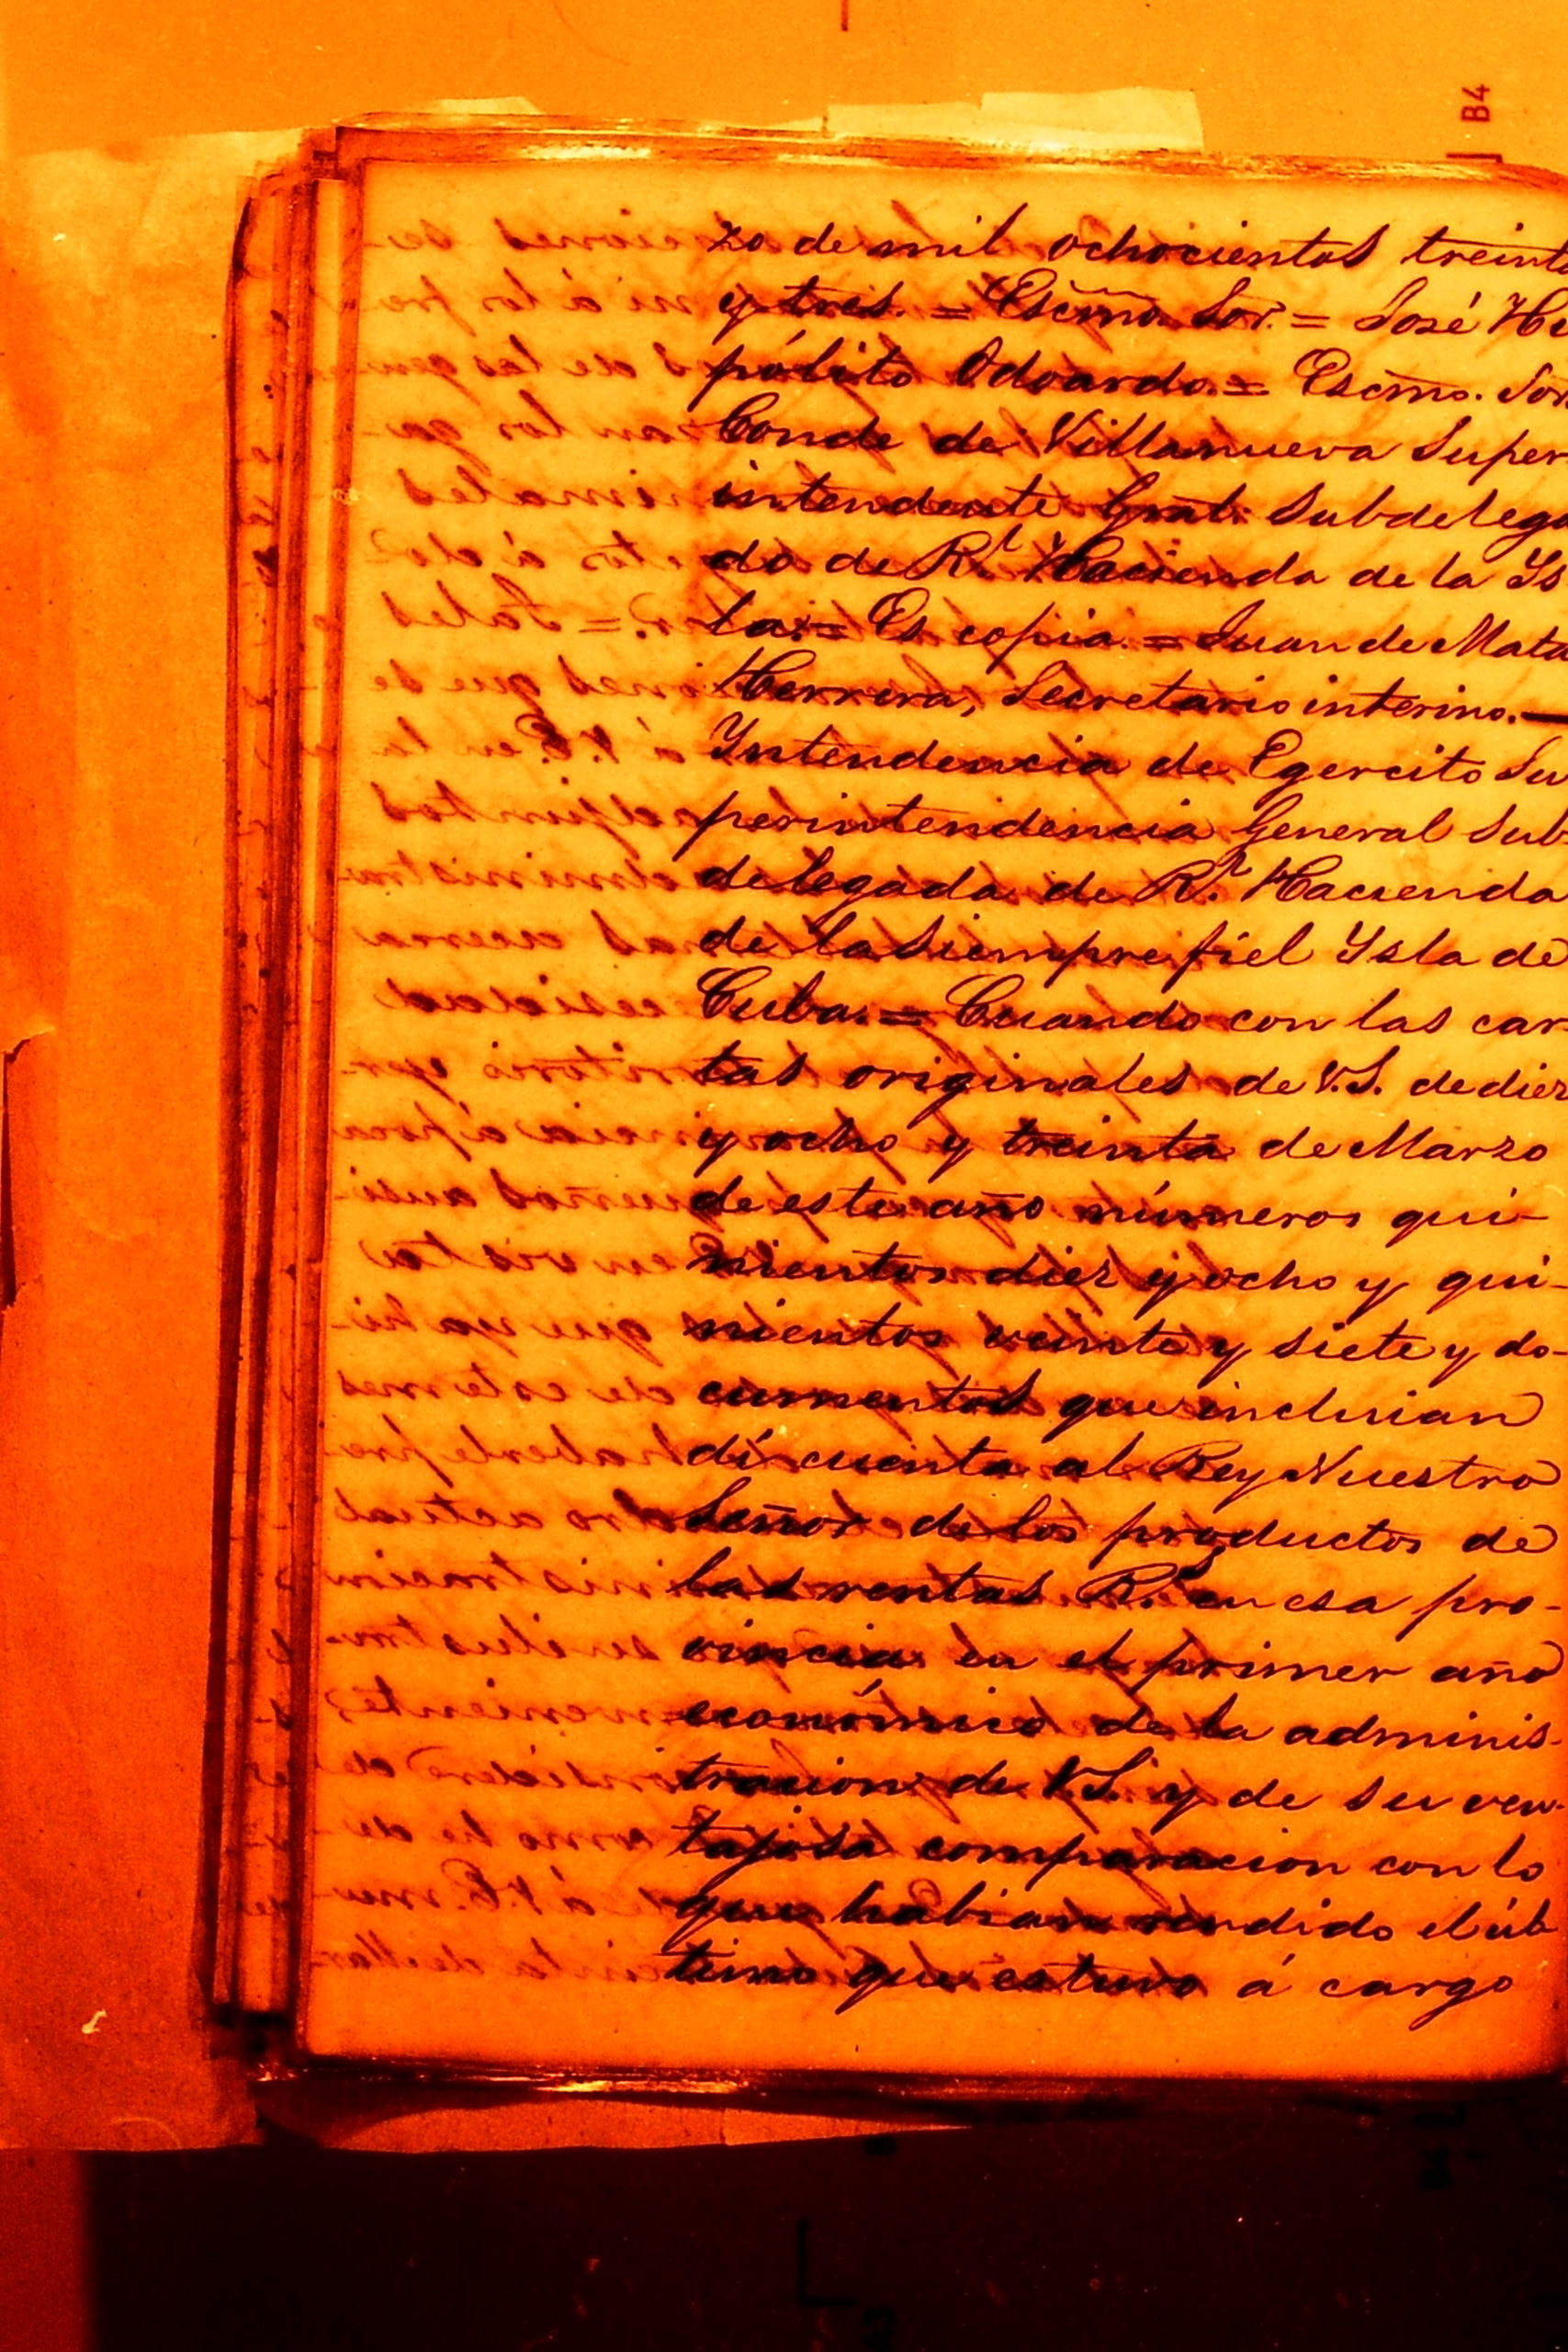 B4
zo de mil ochocientos treinta
y tres. = Escmo. Sor. = José Hi
pólito Odoardo. = Escmo. Sor
Conde de Villanueva Super
intendente Gral. Subdelega
do de Rl. Hacienda de la Ys
la. = Es copia. = Juan de Mata
Herrera, Secretario interino. —
Yntendencia de Egercito Su
perintendencia General Sub-
delegada de Rl. Hacienda
de la siempre fiel Ysla de
Cuba. = Cuando con las car-
tas originales de V.S. de diez
y ocho y treinta de Marzo
de este año números qui-
nientos diez y ocho y qui-
nientos veinte y siete y do-
cumentos que incluian
dí cuenta al Rey Nuestro
Señor de los productos de
las rentas Rs. en esa pro-
vincia en el primer año
económico de la adminis-
tracion de V.S. y de su ven-
tajosa comparacion con lo
que habian rendido el úl
timo que estuvo á cargo